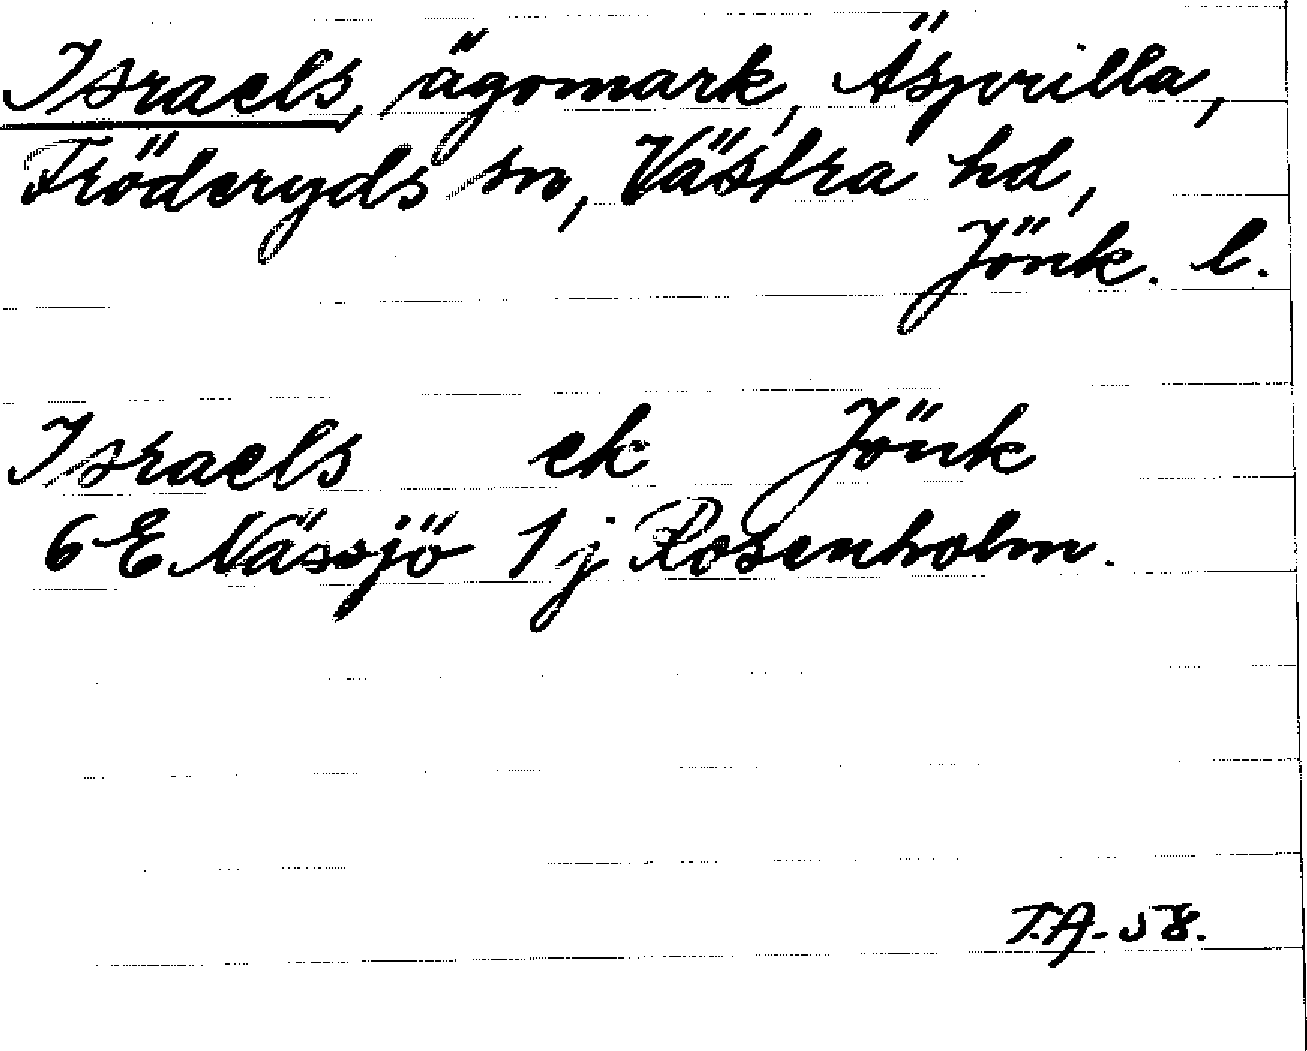 Israels, ägomark, Äspvilla,
Fröderyds sn, Västra hd,
Jönk. l.
Israels ek Jönk
6 E Nässjö 1 j Rosenholm.
T.A. 58.